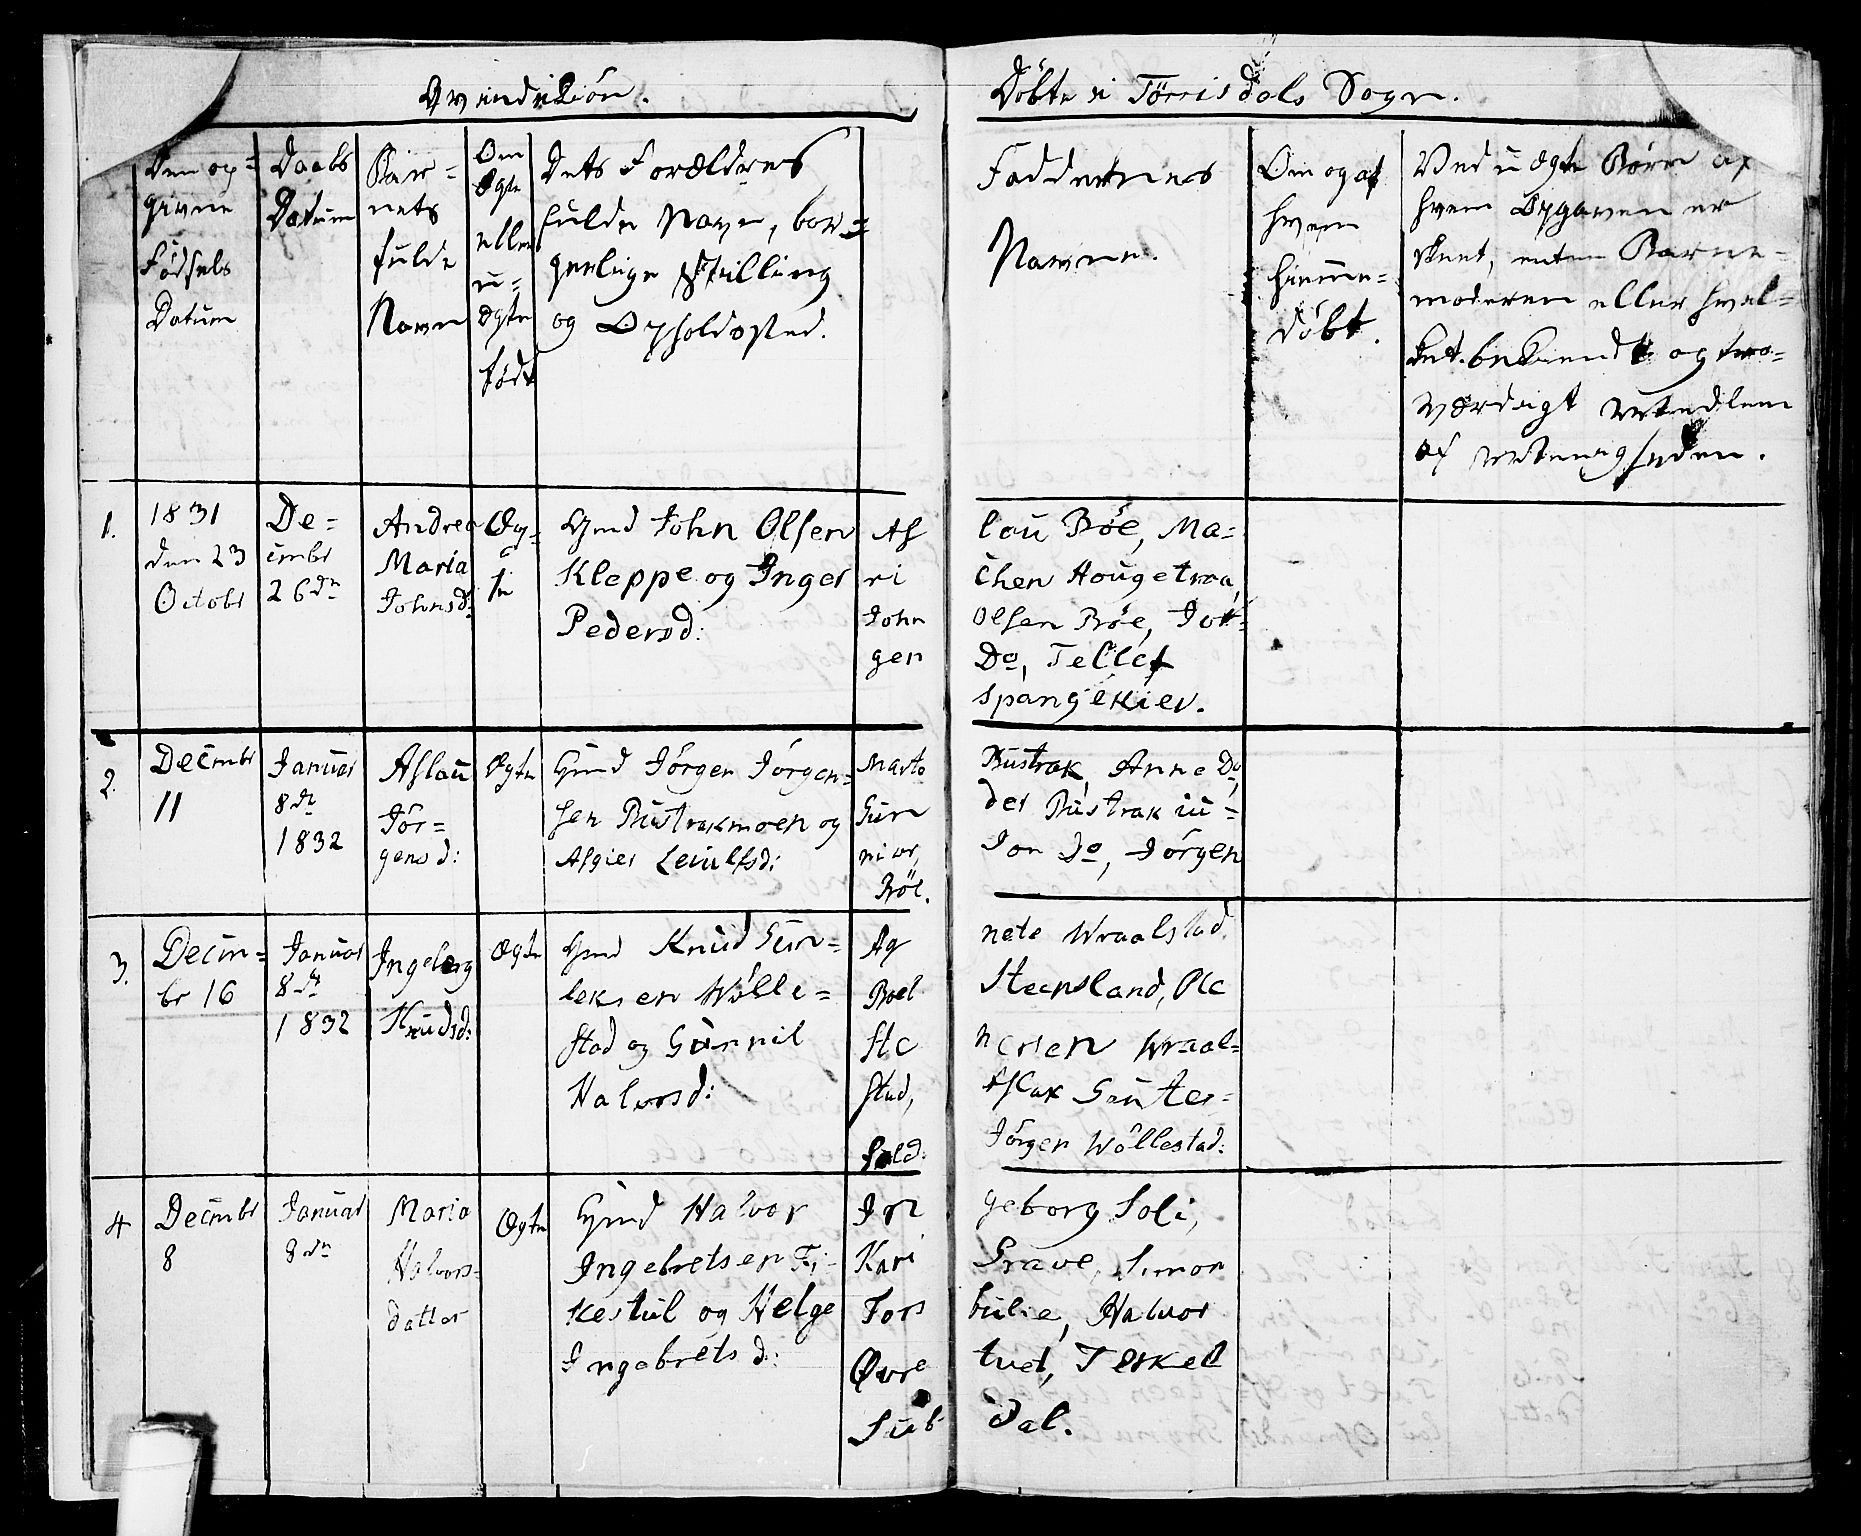 Qvindekiön.
Döbte i Törrisdals Sogn.
Den op=
givne
Födsels
Datum
Daabs
Datum
Bar=
nets
fulde
Navn
Om
Ægte
eller
u=
ægte
födt
Dets Forældres
fulde Navn, bor=
gerlige Stilling
og Opholdssted.
Faddernes
Navne.
Om og af
hvem
hiemme=
döbt.
Ved uægte Börn af
hvem Opgaven er
skeet, enten Barne=
moderen eller hvil=
ket bekiendt og tro=
værdigt Medlem
af Menigheden.
1.
1831
den 23
Octobr
De=
cembr
26de
Andrea
Maria
Johnsd:
Æg=
te
Gmd John Olsen
Kleppe og Inger
Pedersd:
As
ri
John
gen
lau Böe, Ma=
chen Hougetraa,
Olsen Böe, Jör=
Do, Tellef
Spangekiev.
2.
Decembr
11
Januar
8de
1832
Aslau
Jör=
gensd:
Ægte
Gmd Jörgen Jörgen=
sen Bustrakmoen og
Asgier Leiulfsd:
Marte
Gun
nior,
Böe.
Bustrak, Anne Do,
der Bustrak iu=
Jon Do, Jörgen
3.
Decem=
br 16
Januar
8de
1832
Ingeborg
Knudsd:
Ægte
Gmd Knud Gun=
leksen Wölle=
stad og Gunnil
Halvorsd:
Ag
Boel
Ste
stad,
sold.
nete Wraalstad.
Steensland, Ole
nersen Wraal=
Aslak Gunter=
Jörgen Wöllestad.
4
Decembr
8
Januar
8de
Maria
Halvors=
datter
Ægte
Gmd Halvor
Ingebretsen Fi=
kestul og Helge
Ingebretsd:
In
Kari
Tors
Øvre
Sub
geborg Soli,
Grave, Simon
bulie, Halvor
tvet, Terkel
dal.